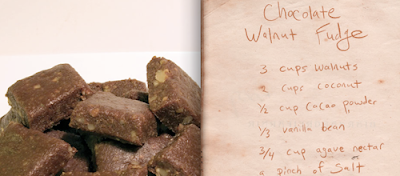 Chocolate
Walnut Fudge
3 cups walnuts
2 cups coconut
1/2 cup cacao powder
1/3 vanilla bean
3/4 cup agave nectar
a pinch of salt